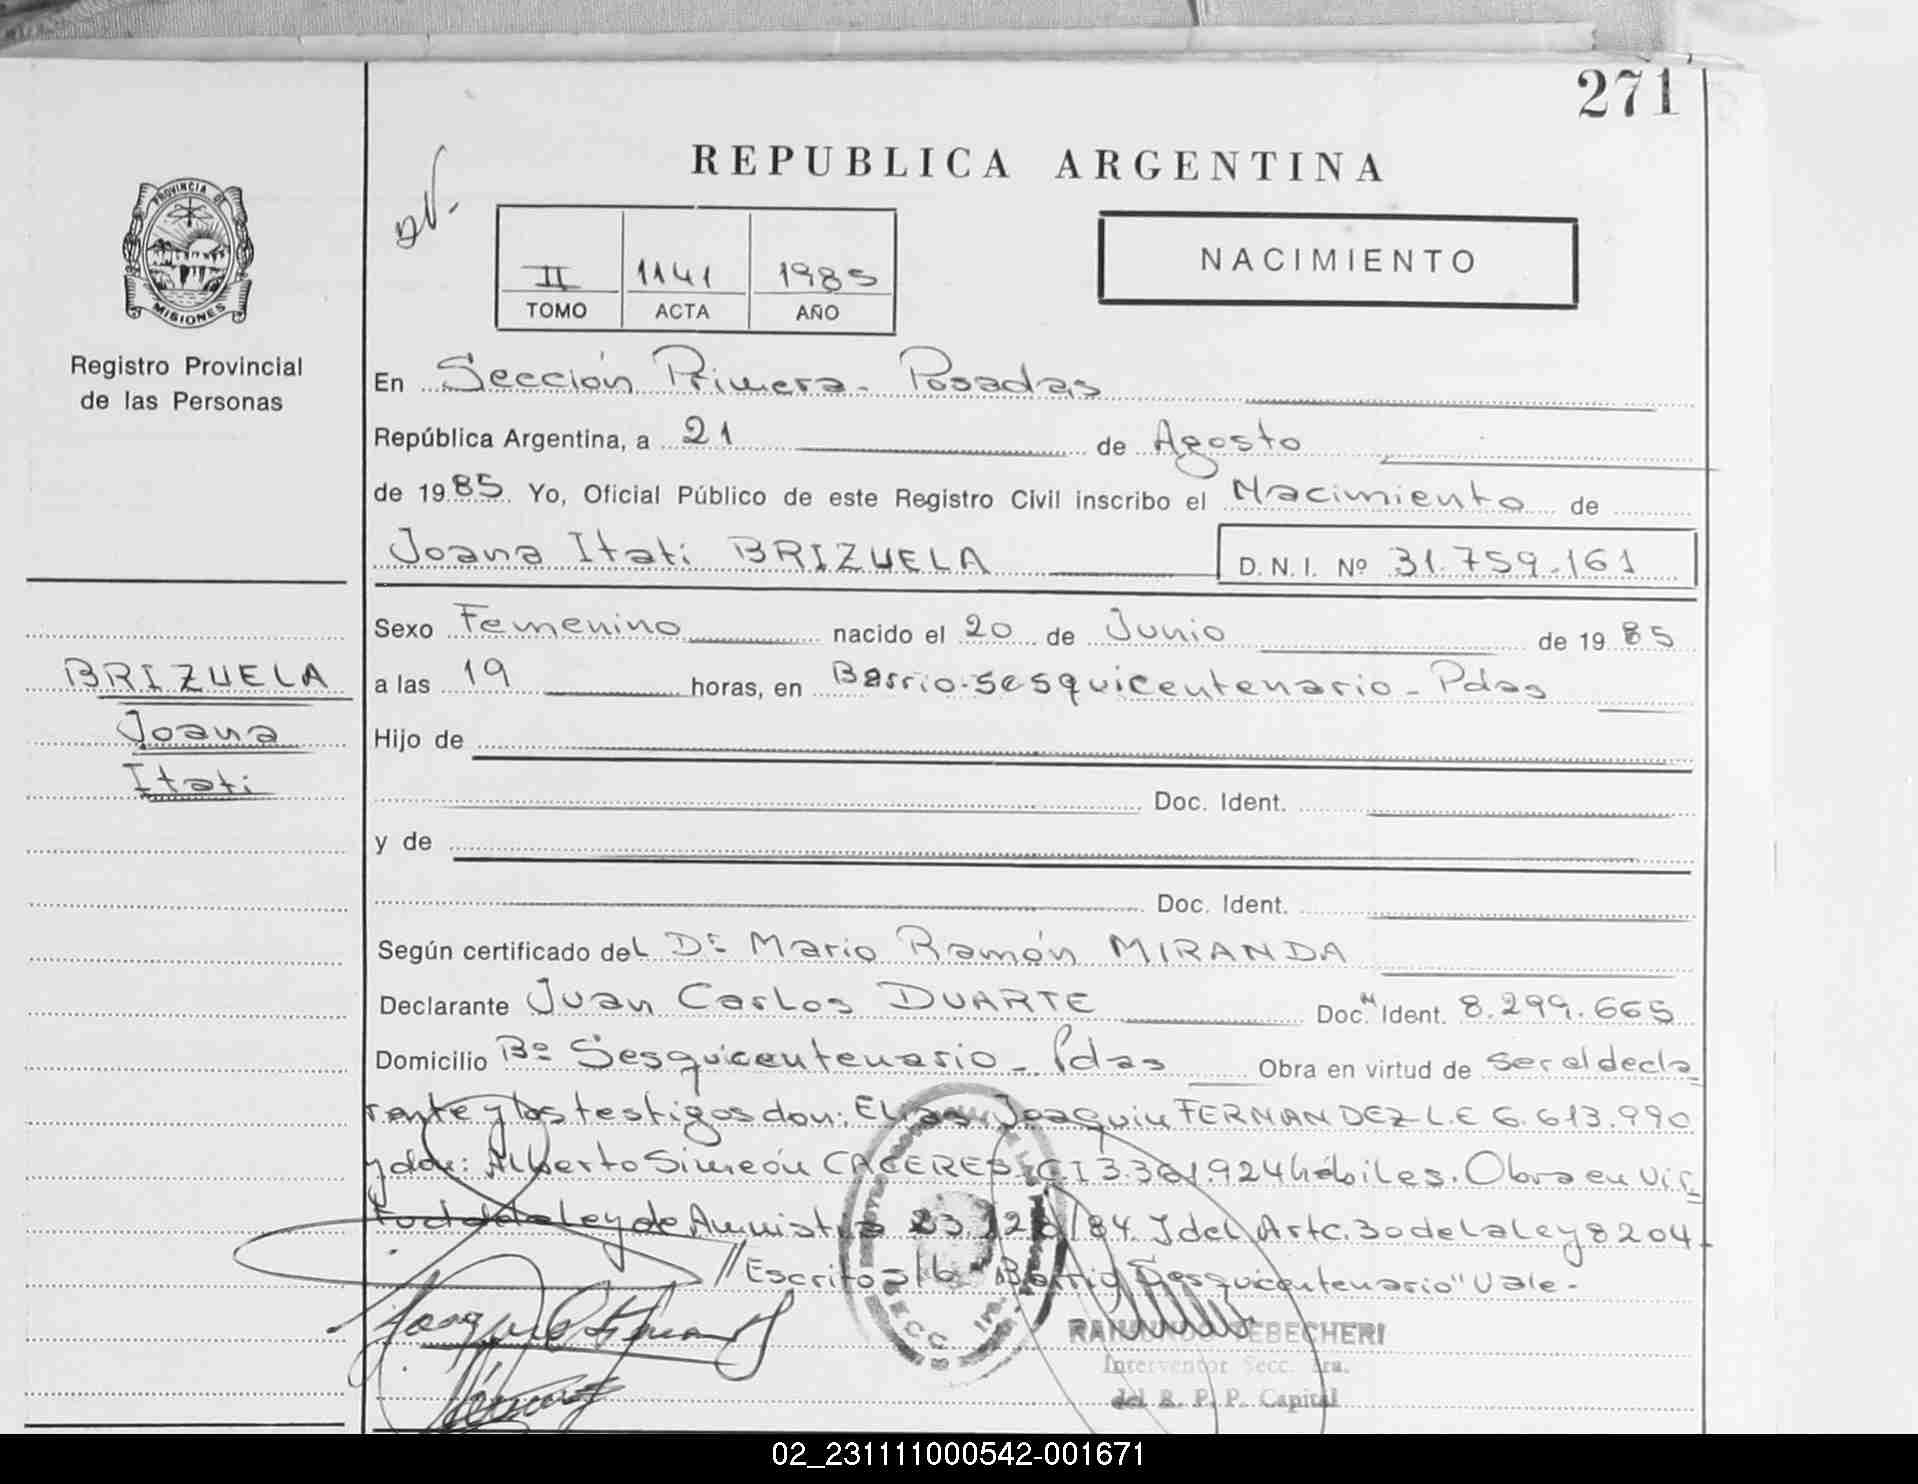 271
REPUBLICA ARGENTINA
PROVINCIA DE
MISIONES
Registro Provincial
de las Personas
II 1141 1985
TOMO ACTA AÑO
NACIMIENTO
En Sección Primera - Posadas
República Argentina, a 21 de Agosto
de 1985 Yo, Oficial Público de este Registro Civil inscribo el Nacimiento de
Joana Itati BRIZUELA D.N.I. Nº 31.759.161
Sexo Femenino nacido el 20 de Junio de 1985
BRIZUELA
Joana
Itati
a las 19 horas, en Barrio Sesquicentenario - Pdas
Hijo de
Doc. Ident.
y de
Doc. Ident.
Según certificado del Dr Mario Ramón MIRANDA
Declarante Juan Carlos DUARTE Doc. Ident. 8.299.665
Domicilio Bº Sesquicentenario - Pdas Obra en virtud de ser el decla
rante y los testigos don: Elias Joaquin FERNANDEZ L.E 6.613.990
y don: Alberto Simeón CACERES C.I 3.361.924 hábiles. Obra en vir
tud de la Ley de Amnistia 23.128/84. Y del Artc. 30 de la ley 8204-
// Escrito s/b "Barrio Sesquicentenario" Vale-
SECC. 1ra.
RAIMUNDO TEBECHERI
Interventor Secc. 1ra.
del R. P. P. Capital
02_231111000542-001671